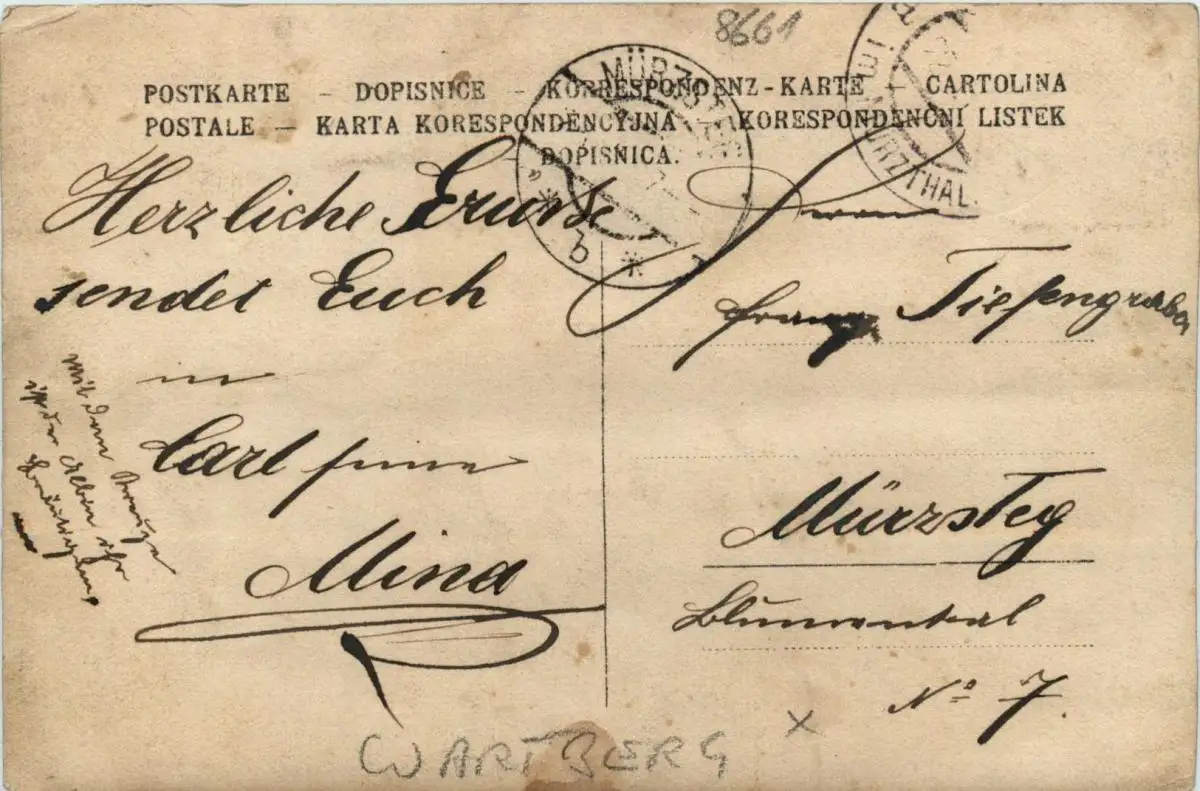 8661
POSTKARTE – DOPISNICE – KORRESPONDENZ-KARTE – CARTOLINA
POSTALE – KARTA KORESPONDENCYJNA – KORESPONDENČNI LISTEK
DOPISNICA.
MÜRZSTEG
* b *
IM MÜRZTHAL
Herzliche Grüße
sendet Euch
Carl
Mina
Mit dem Kreuze
ist der Neben ihr
Bräutigam
Franz Tiefengraber
Mürzsteg
Blumental
No 7.
x
WARTBERG